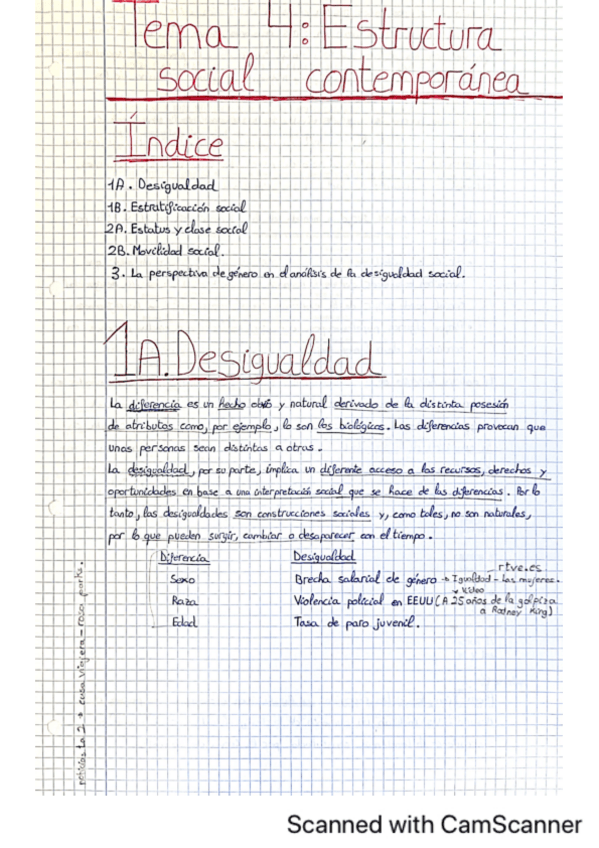 Tema 4: Estructura
social contemporánea
Índice
1A. Desigualdad
1B. Estratificación social
2A. Estatus y clase social
2B. Movilidad social.
3. La perspectiva de género en el análisis de la desigualdad social.
1A. Desigualdad
La diferencia es un hecho obvio y natural derivado de la distinta posesión
de atributos como, por ejemplo, lo son los biológicos. Las diferencias provocan que
unas personas sean distintas a otras.
La desigualdad, por su parte, implica un diferente acceso a los recursos, derechos y
oportunidades en base a una interpretación social que se hace de las diferencias. Por lo
tanto, las desigualdades son construcciones sociales y, como tales, no son naturales,
por lo que pueden surgir, cambiar o desaparecer con el tiempo.
Diferencia Desigualdad
rtve.es
Sexo Brecha salarial de género → Igualdad - Las mujeres.
video
Raza Violencia policial en EEUU (A 25 años de la golpiza
a Rodney King)
Edad Tasa de paro juvenil.
noticias la 2 → cusa viajera - rosa parks.
Scanned with CamScanner